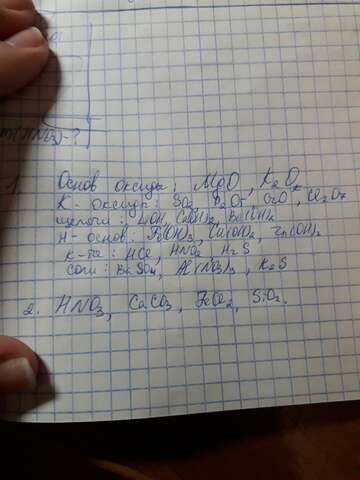 m(HNO3)-?
1. Основ оксиды: MgO, K2O,
К- оксиды: SO2, P2O5, CrO, Cl2O7
щелочи: LiOH, Ca(OH)2, Ba(OH)2
Н- основ: Fe(OH)3, Cu(OH)2, Zn(OH)2
к-ты: HCl, HNO2, H2S
соли: BaSO4, Al(NO3)3, K2S
2. HNO3, CaCO3, FeCl2, SiO2.